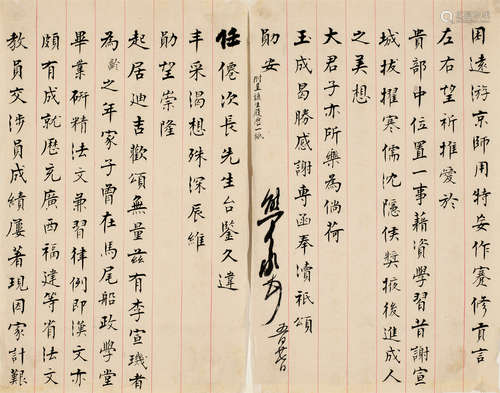 困遠游京師用特妄作蹇修貢言
左右望祈推愛於
貴部中位置一事藉資學習昔謝宣
城拔擢寒儒沈隱侯獎掖後進成人
之美想
大君子亦所樂為倘荷
玉成曷勝感謝專函奉瀆祇頌
勛安
附呈該生履歷一紙
任僊次長先生台鑒久違
丰采渴想殊深辰維
勛望崇隆
起居迪吉歡頌無量茲有李宣璣者
為齡之年家子曾在馬尾船政學堂
畢業術精法文兼習律例即漢文亦
頗有成就歷充廣西福建等省法文
教員交涉員成績屢著現因家計艱